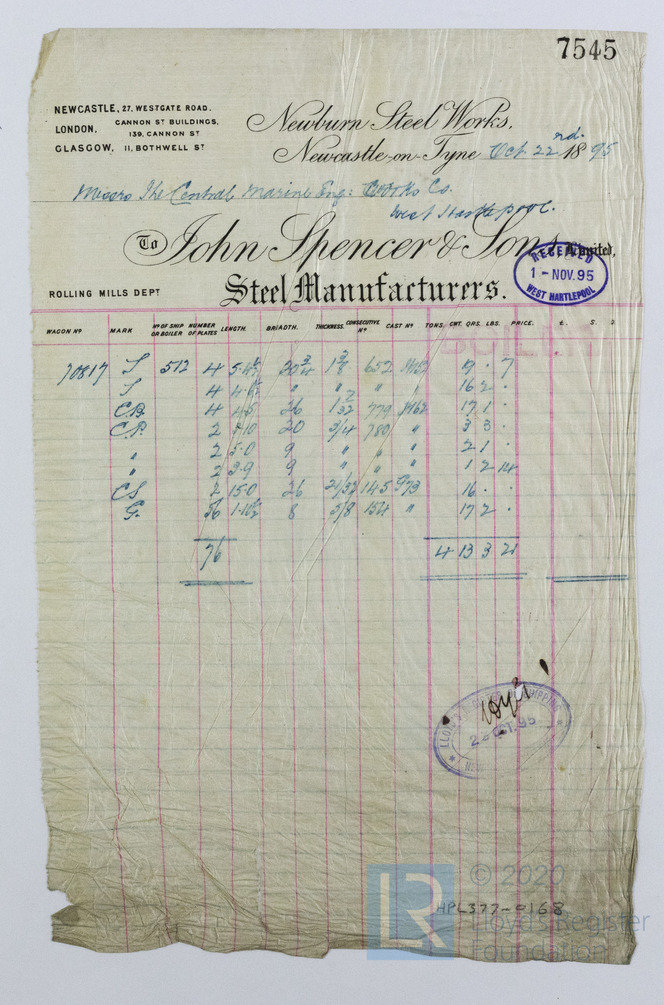 7545
NEWCASTLE, 27. WESTGATE ROAD.
LONDON, CANNON ST BUILDINGS, 139, CANNON ST
GLASGOW, 11, BOTHWELL ST
Newburn Steel Works,
Newcastle-on-Tyne Oct 22nd. 1895
Messrs The Central Marine Eng: Works Co.
West Hartlepool.
To John Spencer & Sons, Limited,
RECEIVED
1 - NOV. 95
WEST HARTLEPOOL
ROLLING MILLS DEPT
Steel Manufacturers.
WAGON No MARK No OF SHIP OR BOILER NUMBER OF PLATES LENGTH. BREADTH. THICKNESS. CONSECUTIVE No CAST No TONS. CWT. QRS. LBS. PRICE. £. S. D.
70817 S 512 4 20 3/4 652 9 . 7
S 4 " " " " 16 2 .
C.B. 4 4.5 26 1 7/32 779 17 1 .
C.P. 2 20 3/4 780 " 3 3 .
" 2 5.0 9 " " " 2 1 .
" 2 3.9 9 " " " 1 2 14
CS 2 15.0 26 21/32 145 973 16 . .
G. 56 8 5/8 154 " 17 2 .
76 4 13 3 21
LLOYD'S REGISTER OF SHIPPING
OCT. 95
© 2020
HPL377-0168
LR
Lloyd's Register
Foundation